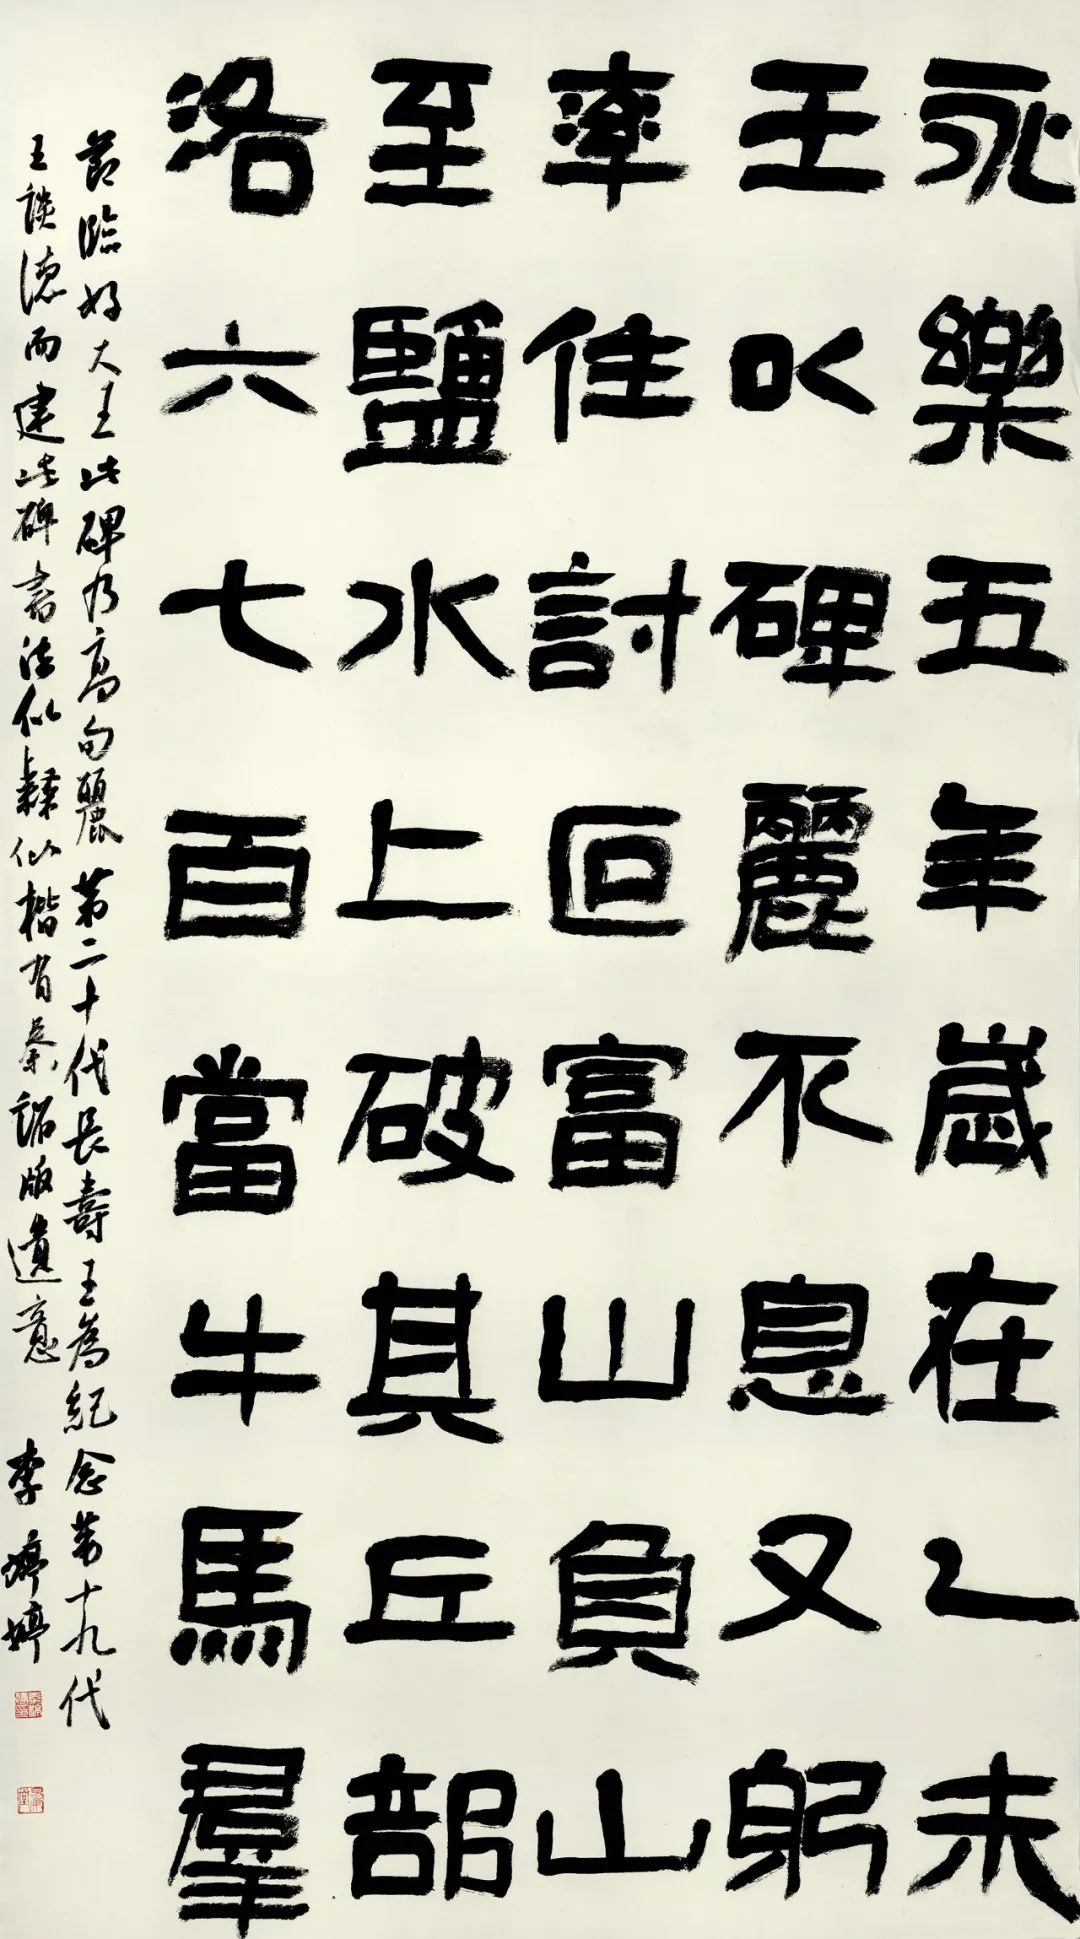 永樂五年歲在乙未
王以碑麗不息又躬
率住討叵富山負山
至鹽水上破其丘部
洛六七百當牛馬羣
節臨好大王此碑乃高句麗第二十代長壽王為紀念第十九代
王談德而建此碑書法似隸似楷有秦詔版遺意 李婷婷